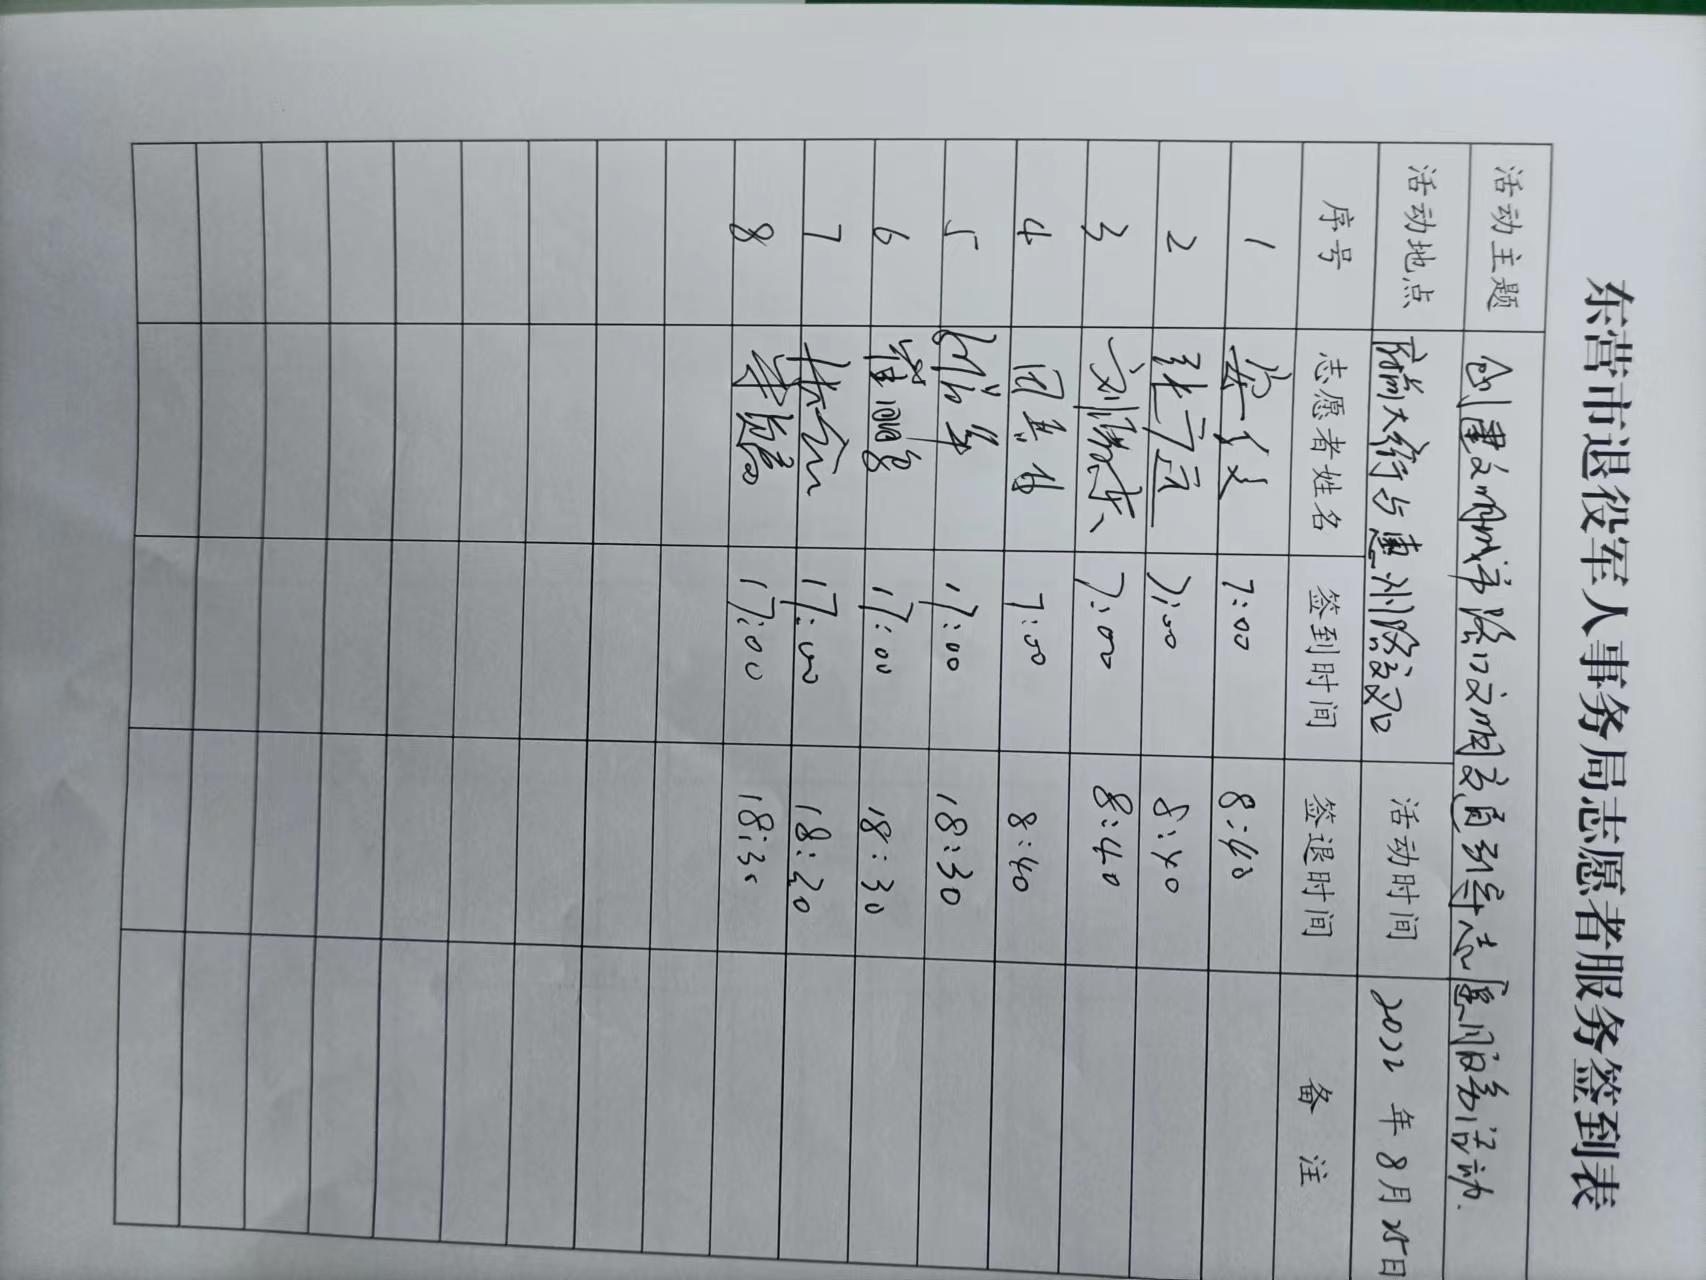 东营市退役军人事务局志愿者服务签到表
活动主题 创建文明城市路口文明交通引导志愿服务活动.
活动地点 府前大街与惠州路交叉口 活动时间 2022 年 8 月 25 日
序号 志愿者姓名 签到时间 签退时间 备 注
1 7:00 8:40
2 7:00 8:40
3 7:00 8:40
4 7:00 8:40
5 17:00 18:30
6 崔丽霞 17:00 18:30
7 17:00 18:30
8 17:00 18:30